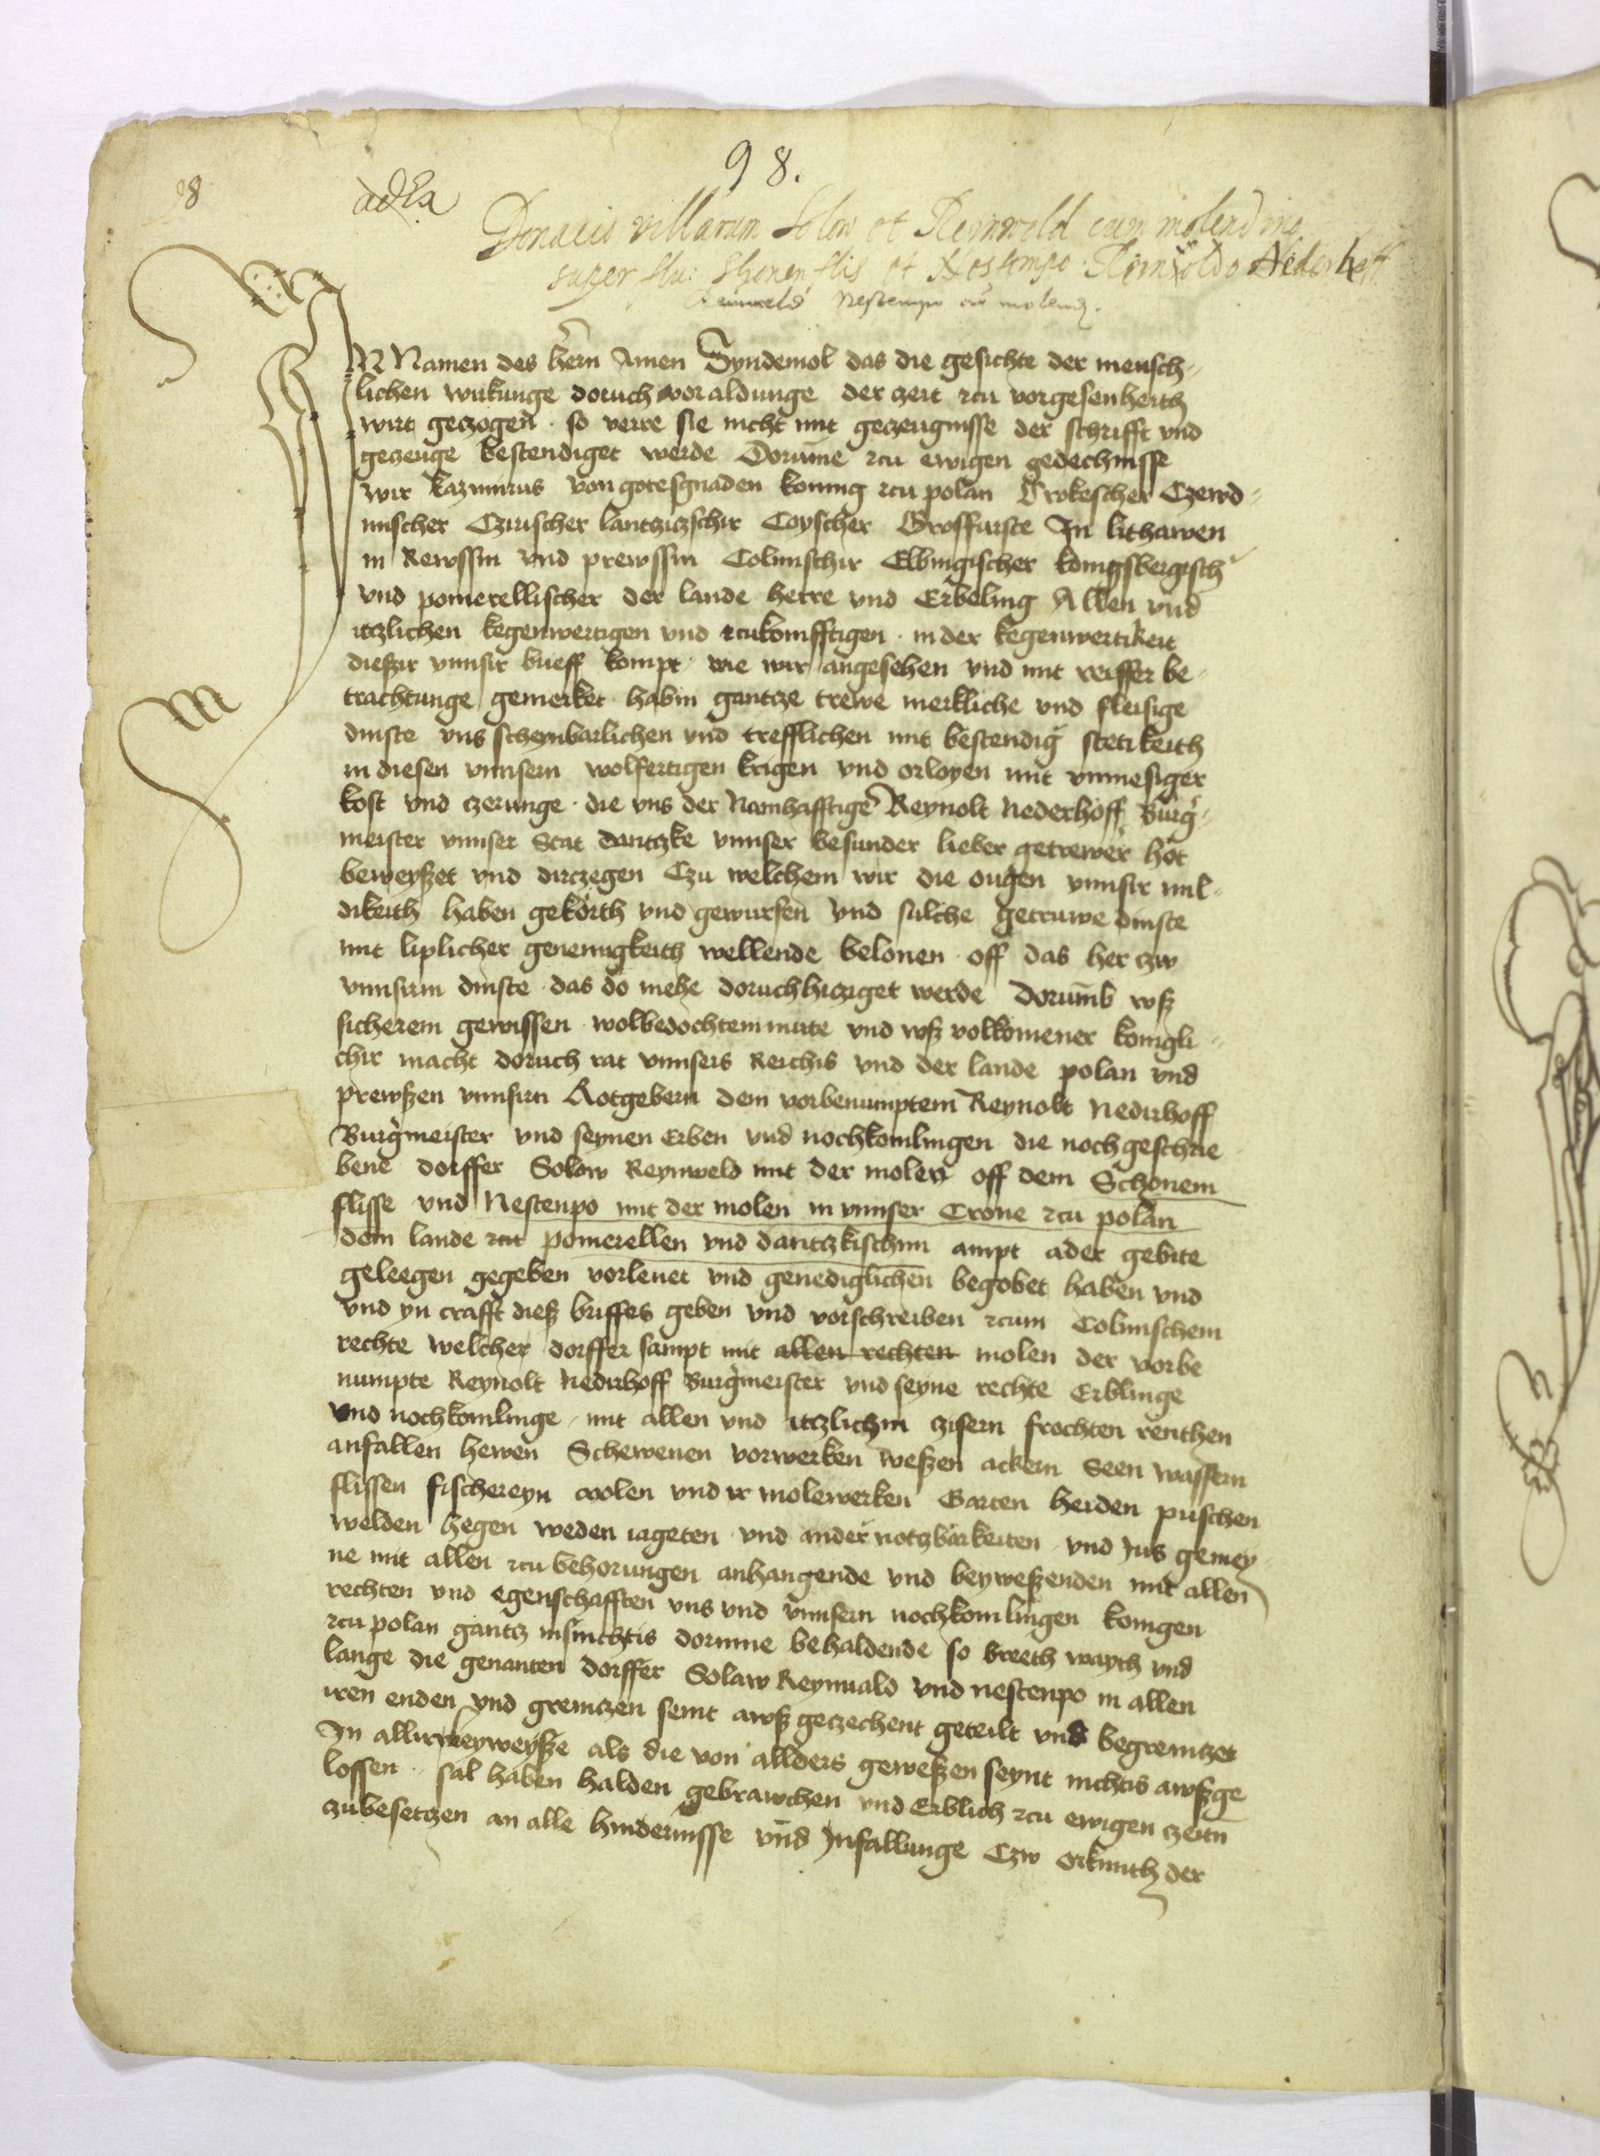 98.
98
Donacio villarum Solow et Reinweld cum molendino
super flu: Shonenflis et Nestempo Reinoldo Nederhoff
Reinweld Nestempo cum molend.
IN Namen des hern Amen Syndemol das die gesichte der mensch-
lichen wirkunge doruch voraldunge der czeit rcu vorgesenheith
wirt geczogen so verre sie nicht mit geczeugnisse der schrifft vnd
geczeuge bestendiget werde Dorume rcu ewigen gedechnisse
wir Kazimirus von gotesgnaden koning rcu polan Crokescher Czewd-
mischer Czirischer lantzitzschir Coyscher Grosfurste In lithawen
in Rewssin vnd prewssin Colmischir Elbingischer konigsbergisch
vnd pomerellischer der lande herre vnd Erbeling Allen vnd
itzlichen kegenwertigen vnd rcukomfftigen in der kegenwertikeit
dieszir vnnsir brieff kompt wie wir angesehen vnd mit reiffer be-
trachtunge gemerket habin gantcze trewe merkliche vnd fleisige
dinste vns scheynbarlichen vnd trefflichen mit bestendig stetikeith
in diesen vnnsern wolfertigen krigen vnd orloyen mit vnmesiger
kost vnd czerunge die vns der Namhafftige Reynolt Nederhoff Burg-
meister vnnser Stat dantzke vnnser besunder lieber getrewer hot
beweyszet vnd dirczegen Czu welchem wir die ougen vnnsir mil-
dikeith haben gekorth vnd geworfen vnd sulche getruwe dinste
mit liplicher genemigkeith wellende belonen off das her czw
vnnsirm dinste das do mehe doruchhicziget werde dorumb wsz
sicherem gewissen wolbedochtem mute vnd wsz volkomener konigli-
chir macht doruch rat vnnsers Reichis vnd der lande polan vnd
prewszen vnnsirn Rotgebern dem vorbenumptem Reynolt Nedirhoff
Burgmeister vnd seynen Erben vnd nochkomlingen die nochgeschrie
bene dorffer Solaw Reynweld mit der molen off dem Schonem
flisse vnd Nestenpo mit der molen in vnnser Crone rcu polan
dem lande rcu pomerellen vnd dantzkischim ampt ader gebite
geleegen gegeben vorlenet vnd genediglichen begobet haben vnd
vnd yn crafft diesz briffes geben vnd vorschreiben rcum Colmischem
rechte welcher dorffer sampt mit allen rechten molen der vorbe
numpte Reynolt Nedirhoff Burgmeister vnd seyne rechte Erblinge
vnd nochkomlinge mit allen vnd itzlichin czisern frochten renthen
anfallen hewen Schewenen vorwerken weszen ackern Seen wassern
flissen fischereyn molen vnd ir molewerken Garten heiden puschen
welden hegen weden iageten vnd ander notzbarkeiten vnd Jus gemey
ne mit allen rcu behorungen anhangende vnd beyweszenden mit allen
rechten vnd egenschafften vns vnd vnnsern nochkomlingen konigen
rcu polan gantz nisnichtis dorinne behaldende so breeth wayth vnd
lange die genanten dorffer Solaw Reynuald vnd nestenpo in allen
iren enden vnd grenitzen seint awsz geczechent geteilt vnd begrenitzet
In allir weyweysze als die von allders geweszen seynt nichtis awszge
lossen sal haben halden gebrawchen vnd Erblich rcu ewigen czeitn
zubesetczen an alle hindernisse vnd Jnfallunge Czw orkunth der